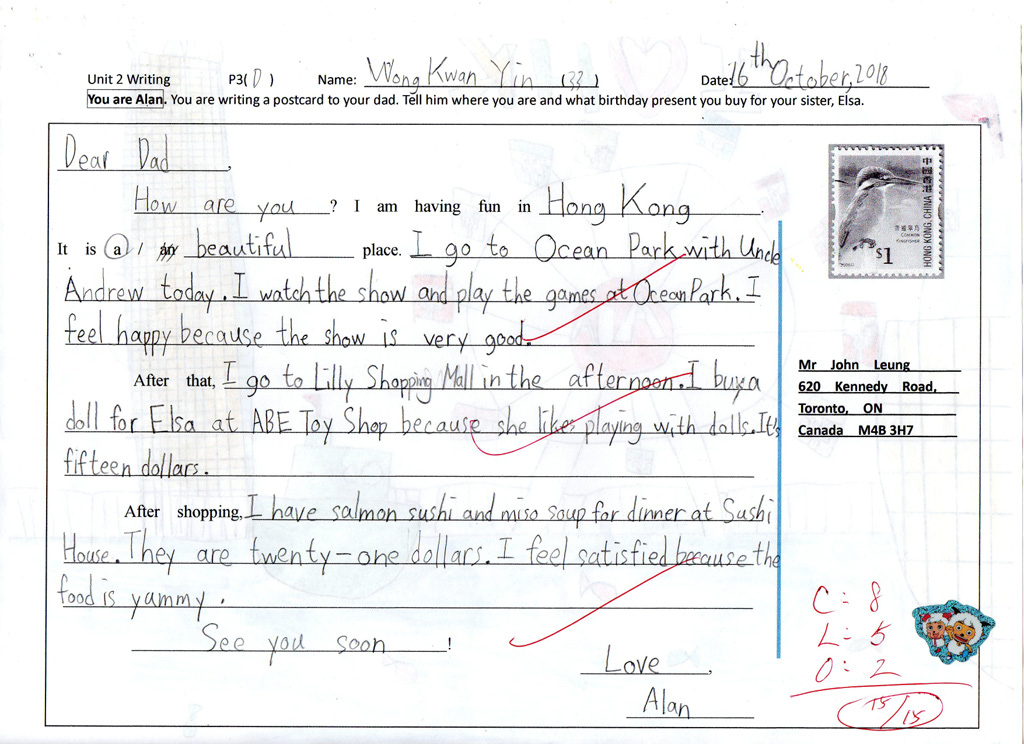 Unit 2 Writing P3( D ) Name: Wong Kwan Yin (33) Date: 16th October, 2018
You are Alan. You are writing a postcard to your dad. Tell him where you are and what birthday present you buy for your sister, Elsa.
Dear Dad,
How are you ? I am having fun in Hong Kong.
It is a / an beautiful place. I go to Ocean Park with Uncle
Andrew today. I watch the show and play the games at Ocean Park. I
feel happy because the show is very good.
After that, I go to Lilly Shopping Mall in the afternoon. I buy a
doll for Elsa at ABE Toy Shop because she likes playing with dolls. It's
fifteen dollars.
After shopping, I have salmon sushi and miso soup for dinner at Sushi
House. They are twenty-one dollars. I feel satisfied because the
food is yammy.
See you soon !
Love,
Alan
中國香港
HONG KONG, CHINA
COMMON
KINGFISHER
$1
Mr John Leung
620 Kennedy Road,
Toronto, ON
Canada M4B 3H7
C: 8
L: 5
O: 2
15/15